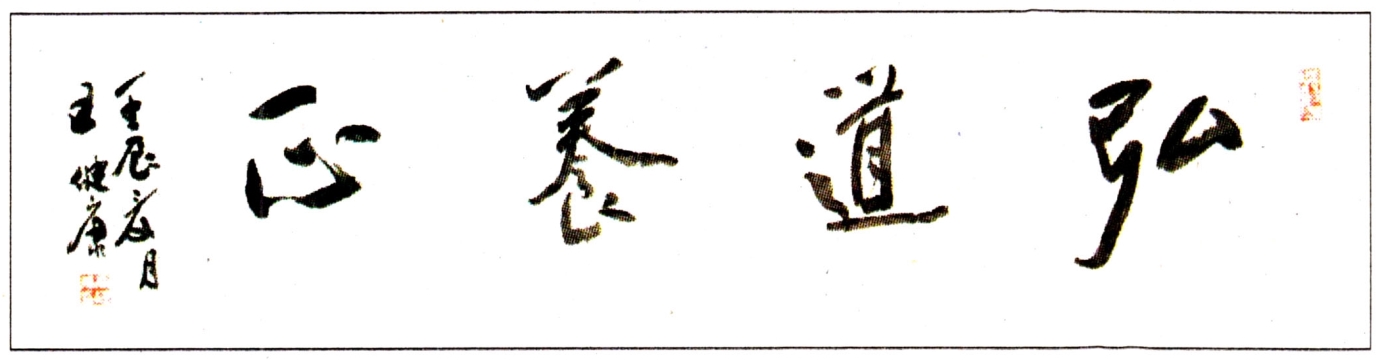 弘道養正
壬辰夏月
王健康